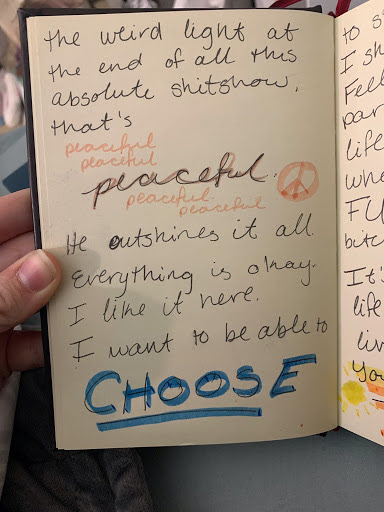 the weird light at
the end of all this
absolute shitshow,
that's
peaceful
peaceful
peaceful.
peaceful
peaceful
He outshines it all.
Everything is okay.
I like it here.
I want to be able to
CHOOSE
to s
I sh
Feel
par
life
whe
FU
bitc
It's
life
liv
You